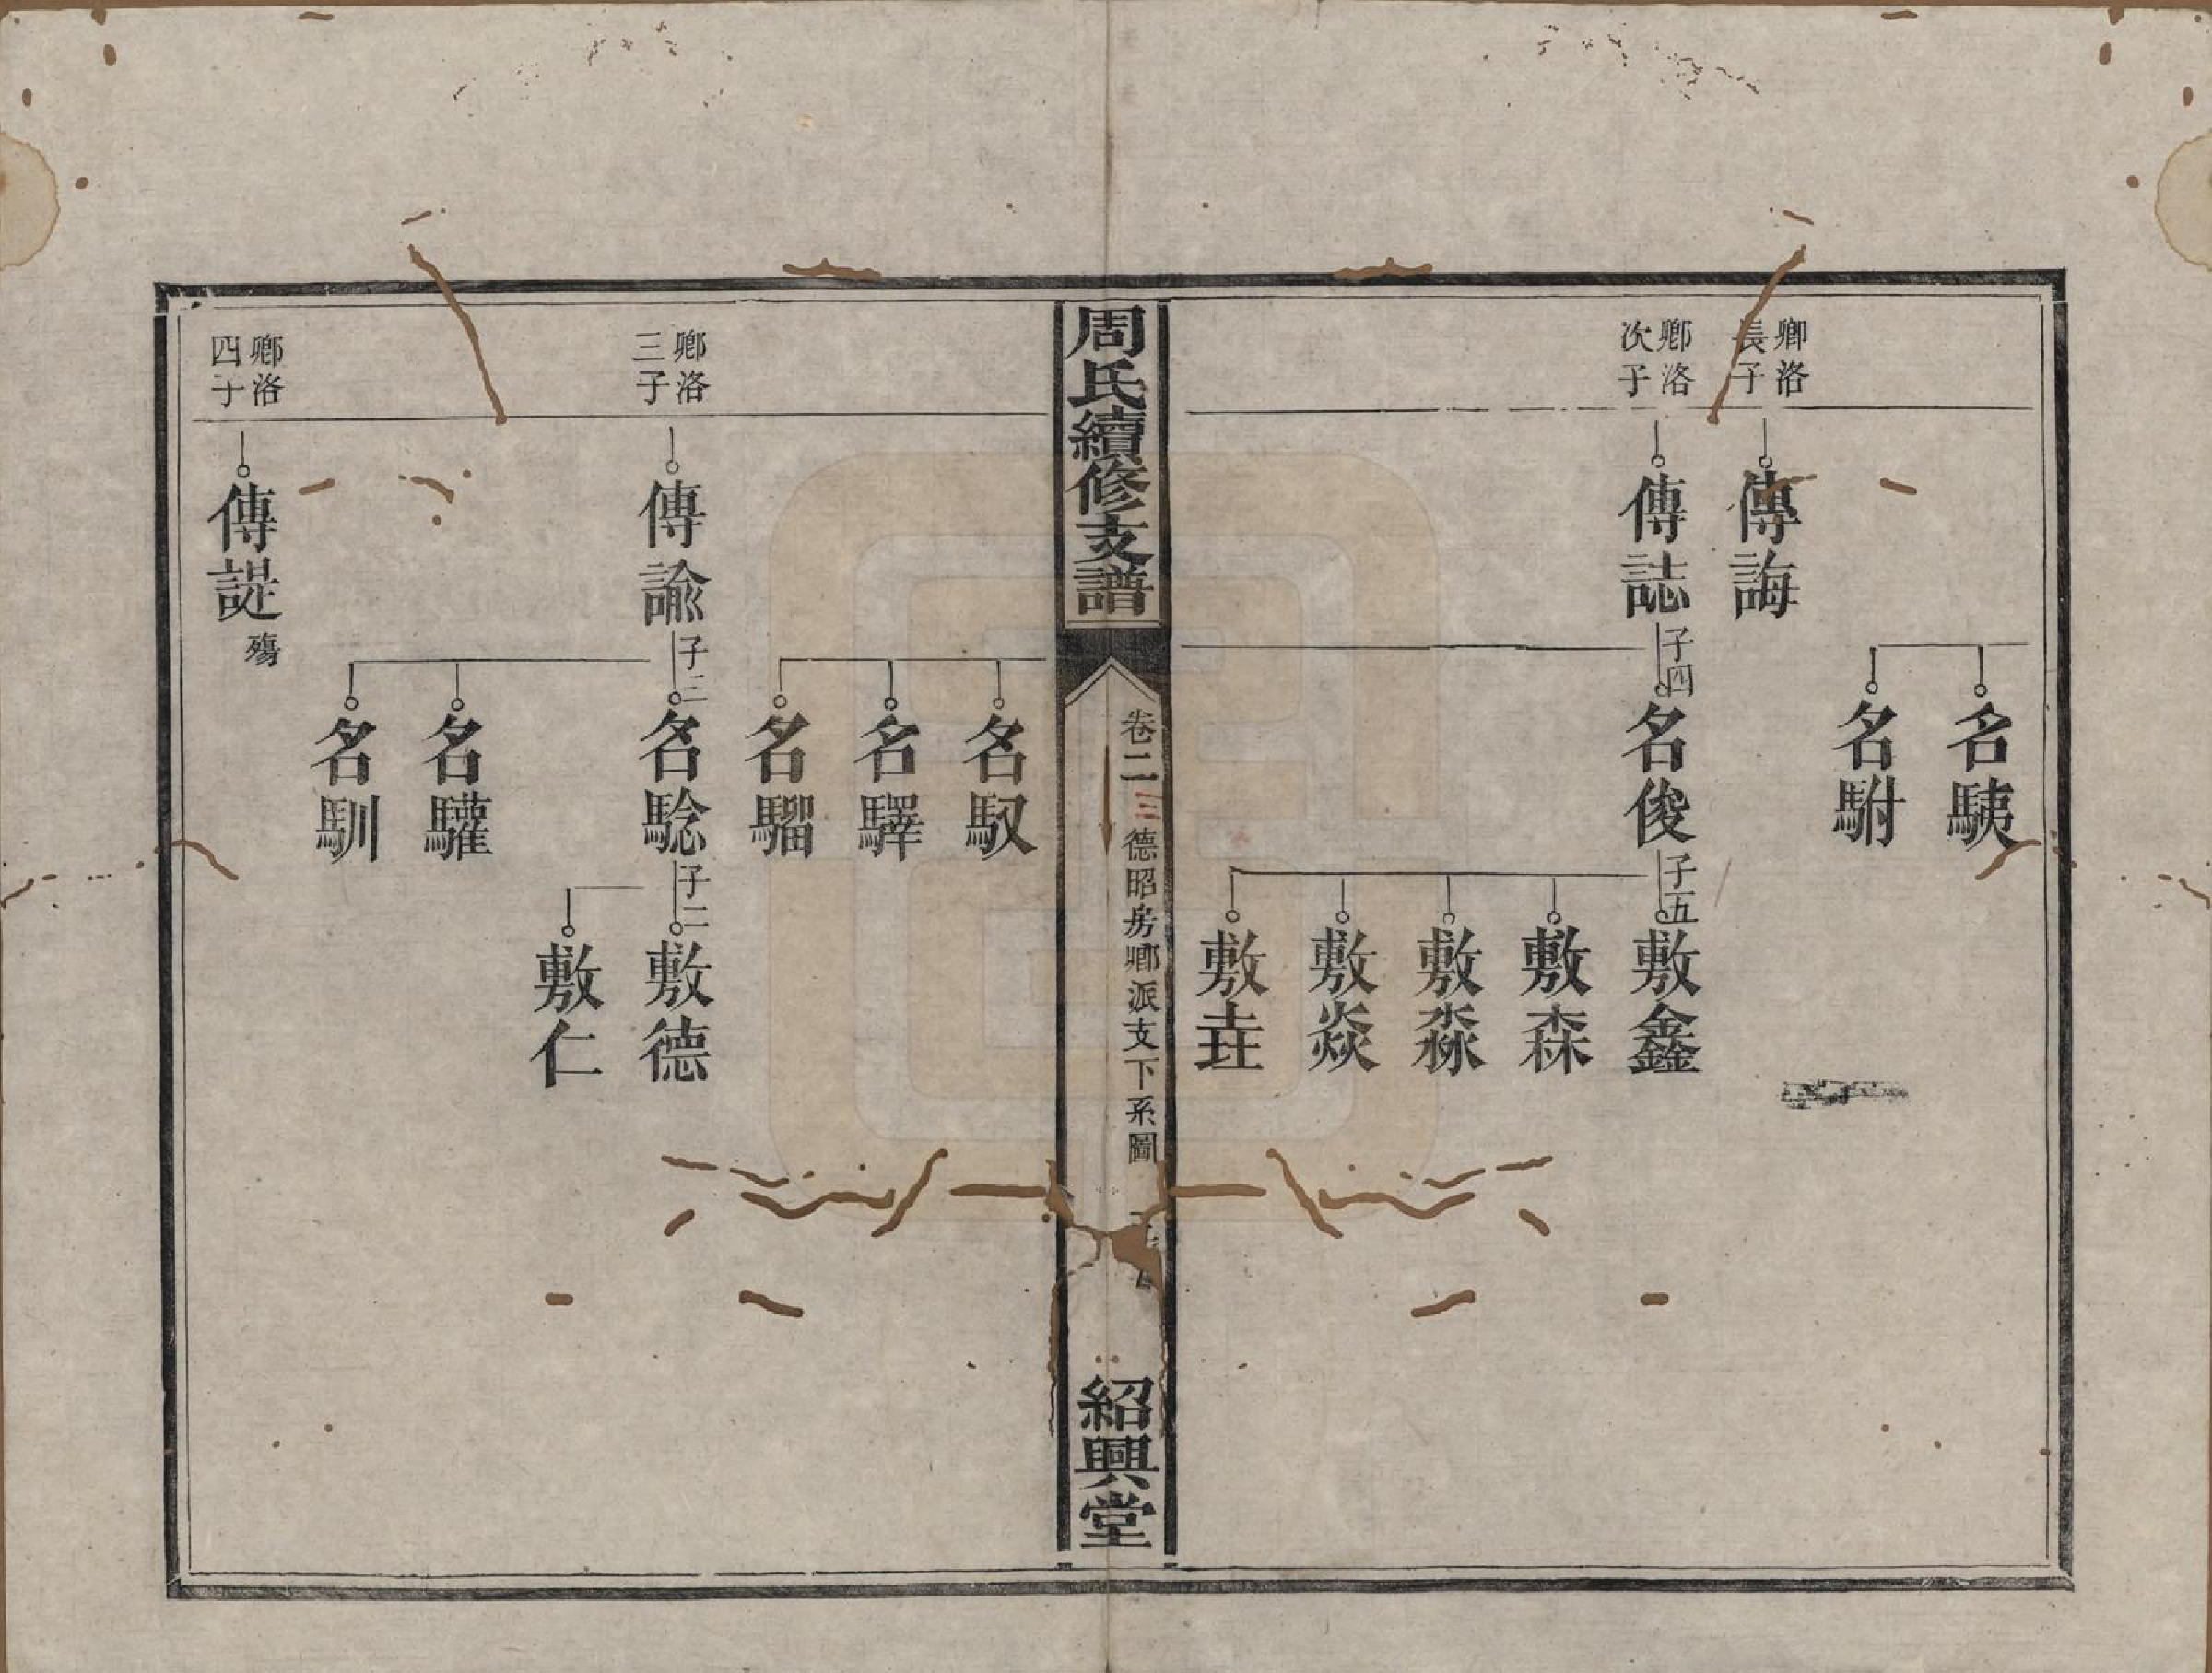 名䮢
名駙
卿洛長子
傳誨
卿洛次子
傳誌
子四
名俊
子五
敷鑫
敷森
敷淼
敷焱
敷垚
周氏續修支譜
卷二三
德昭房鄉派支下系圖
紹興堂
名馭
名驛
名騮
卿洛三子
傳諭
子三
名騐
子二
敷德
敷仁
名驩
名馴
卿洛四子
傳諟
殤